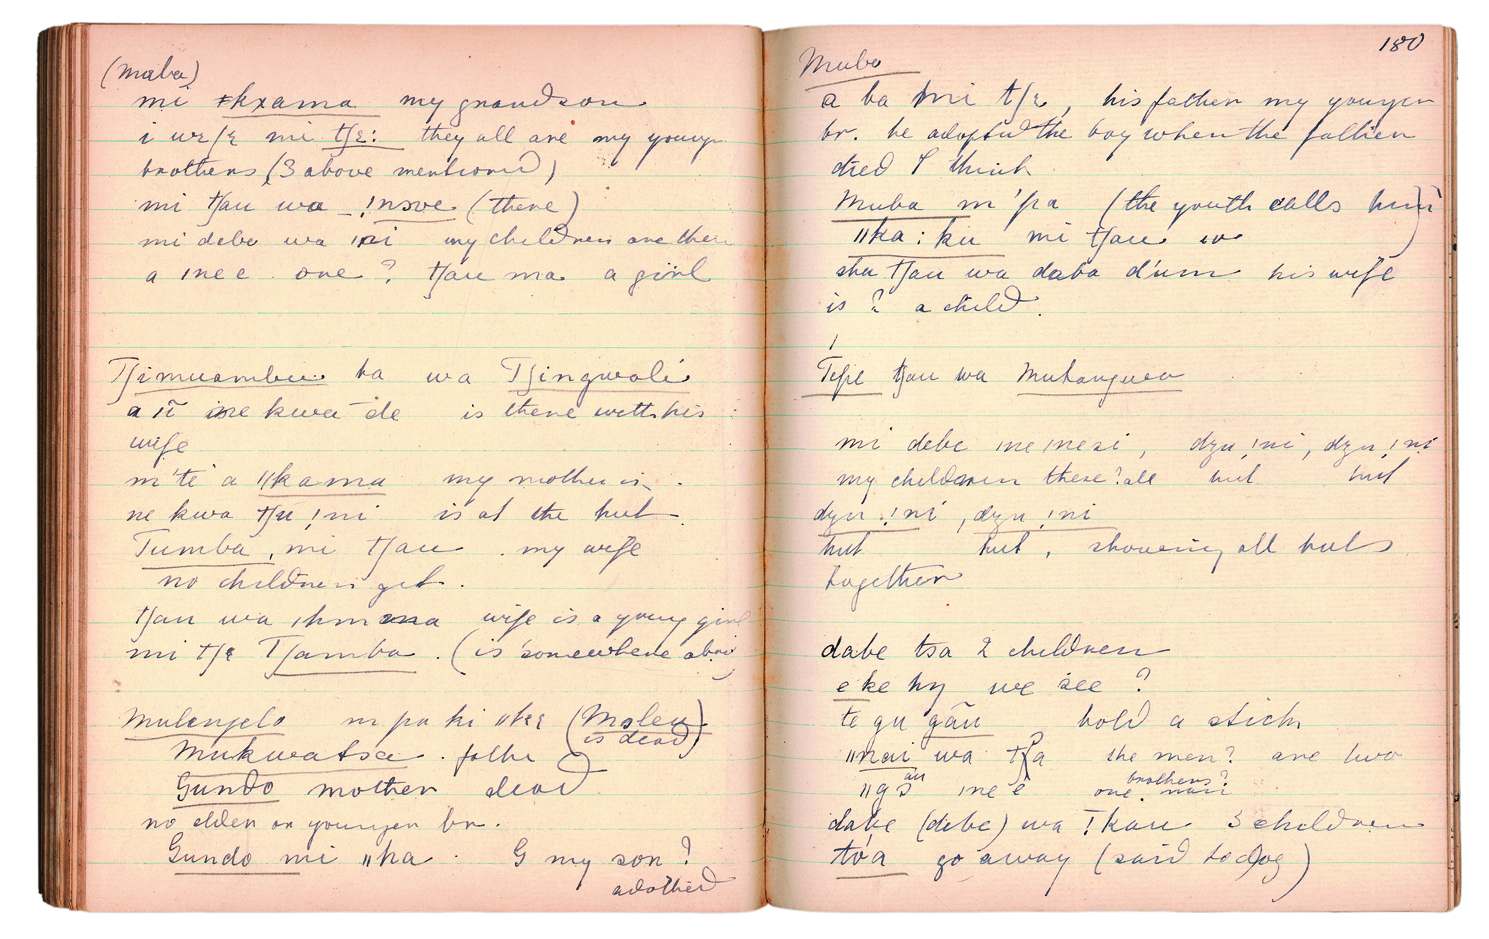 (maba)
mi ǂkxama my grandson
i wɛʃɛ mi tʃɛ: they all are my younger
brothers (3 above mentioned)
mi tʃau wa _ !nove (there)
mi debe wa ǀni my children are there
a ǀnee one? tʃau ma a girl
Tʃimuambu ba wa Tʃingwali
a ti kwa de is there with his
wife
m'te a ǁkama my mother is
ne kwa tʃu !ni is at the hut
Tumba, mi tʃau . my wife
no children yet.
tʃau wa ǀhmma wife is a young girl
mi tʃɛ Tʃamba. (is somewhere about)
Mulenjelo m pa ki ǁkɛ (Moleu)
is dead)
Mukwatsa . father
Gundo mother dead
no elder or younger br.
Gundo mi ǁka . G my son?
adopted
180
Muba
a ba mi tʃɛ, his father my younger
br. he adopted the boy when the father
died I think
Muba m'pa (the youth calls him)
ǁka: ku mi tʃau w
sha tʃau wa daba d'um his wife
is ? a child.
Teʃe tʃau wa Mutangwa
mi debe ǀneǀnesi, dzu !ni, dzu !ni
my children there? all hut hut
dzu !ni, dzu !ni
hut hut, showing all huts
together
dabe tsa 2 children
e ke hy we see?
te gu gãu hold a stick
ǁnau wa tʃa the men? are two
au brothers?
ǁgɔ ǀne e one. man
dabe (debe) wa !kau 3 children
to'a go away (said to dog)